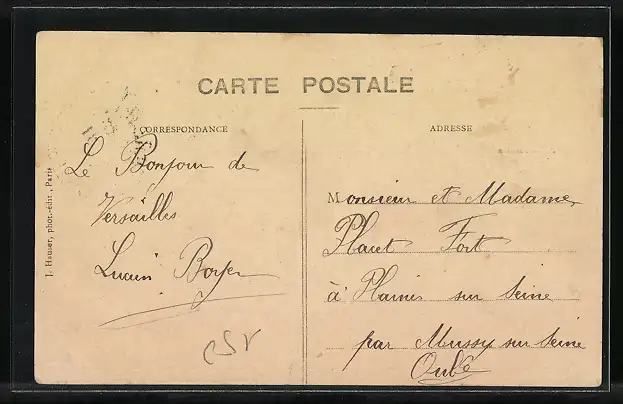 CARTE POSTALE
CORRESPONDANCE
ADRESSE
Le Bonjour de
Versailles
Lucien Boyer
Monsieur et Madame
Plaut Fort
à Plaines sur Seine
par Mussy sur Seine
Aube
J. Hauser, phot.-édit., Paris